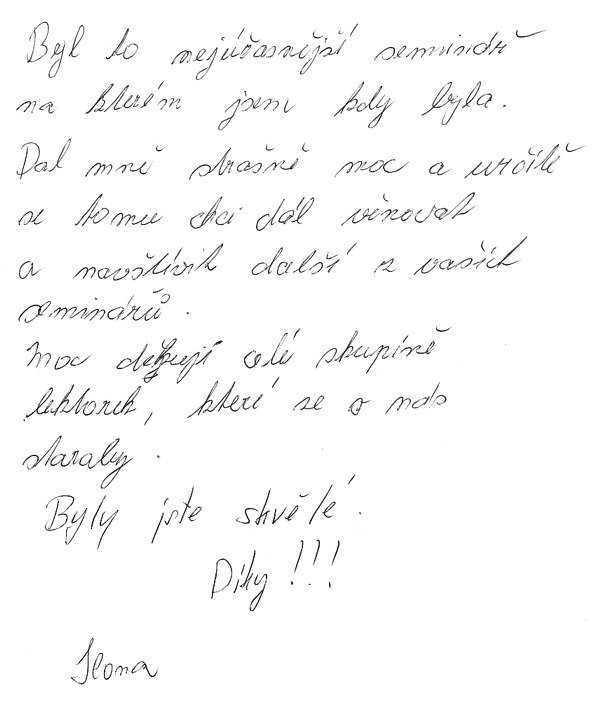 Byl to nejúžasnější seminář
na kterém jsem kdy byla.
Dal mně strašně moc a určitě
se tomu chci dál věnovat
a navštívit další z vašich
seminářů.
Moc děkuji celé skupině
lektorek, které se o nás
staraly.
Byly jste skvělé.
Díky!!!
Ilona